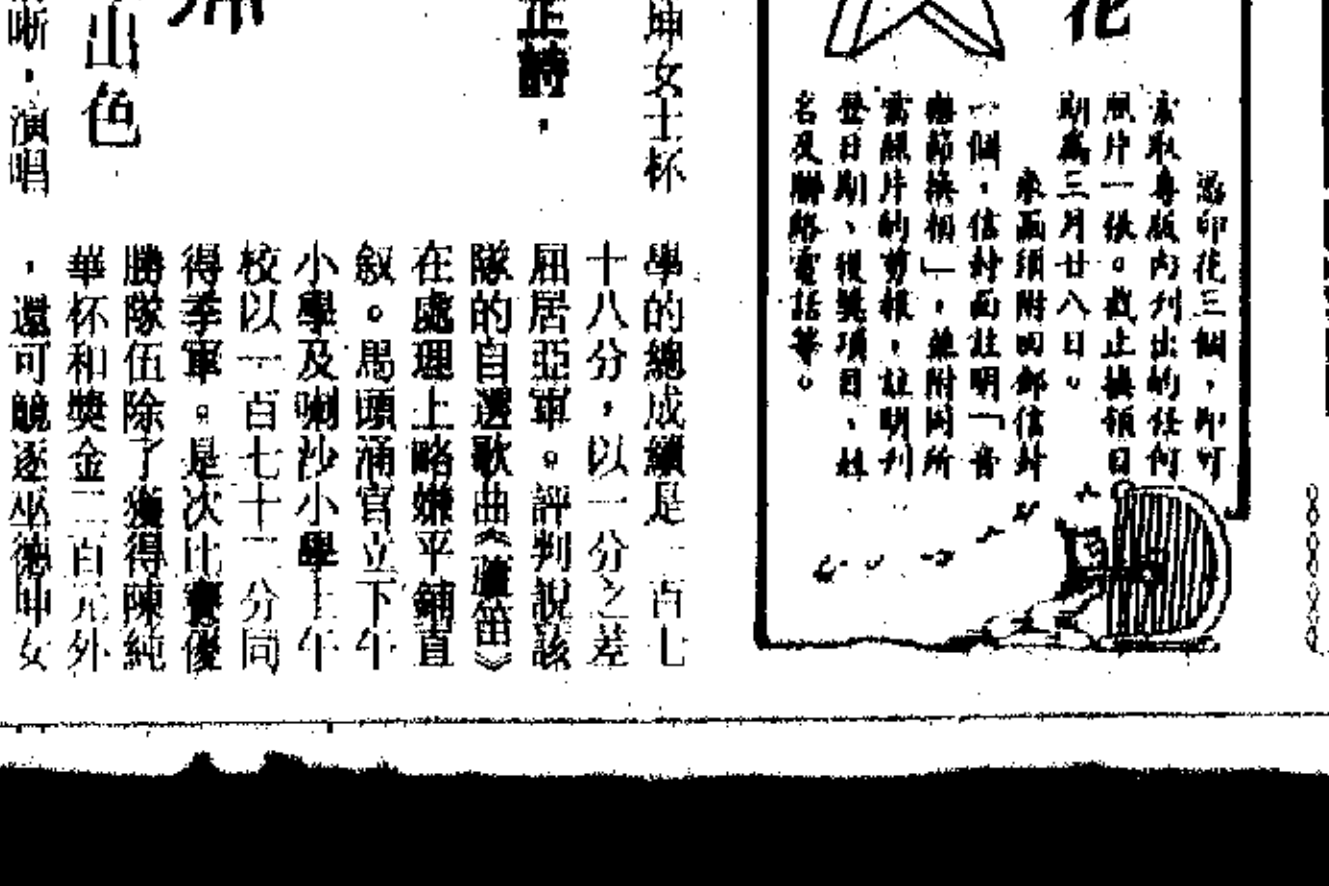 花
憑印花三個，即可
索取專版內刊出的任何
照片一張。截止換領日
期為三月廿八日。
來函須附回郵信封
一個，信封面註明「音
樂節換相」，並附同所
需照片的剪報，註明刊
登日期、獲獎項目、姓
名及聯絡電話等。
坤女士杯
正詩，
出色
晰，演唱
學的總成績是一百七
十八分，以一分之差
屈居亞軍。評判說該
隊的自選歌曲《蘆笛》
在處理上略嫌平鋪直
叙。馬頭涌官立下午
小學及喇沙小學上午
校以一百七十二分同
得季軍。是次比賽優
勝隊伍除了獲得陳純
華杯和獎金二百元外
，還可競逐巫德坤女